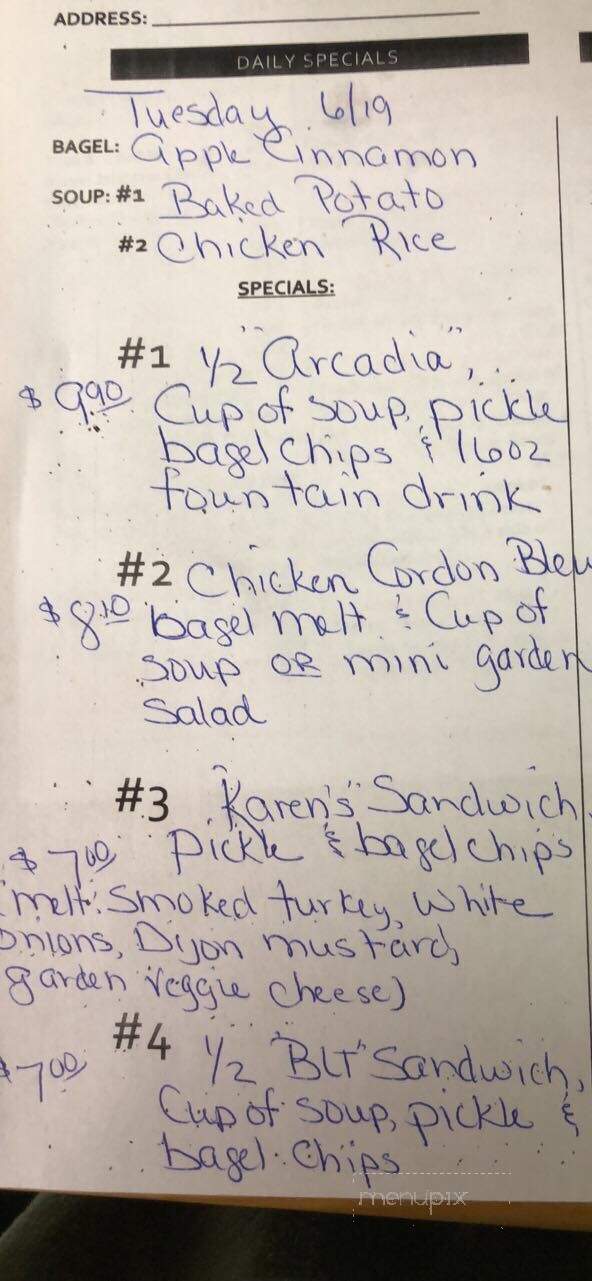 ADDRESS:
DAILY SPECIALS
Tuesday 6/19
BAGEL: Apple Cinnamon
SOUP: #1 Baked Potato
#2 Chicken Rice
SPECIALS:
#1 1/2 "Arcadia",
$9.90 Cup of soup, pickle
bagel chips & 16oz
fountain drink
#2 Chicken Cordon Bleu
$8.10 bagel melt & Cup of
soup OR mini garden
Salad
#3 "Karen's" Sandwich,
$7.00 Pickle & bagel chips
(melt: Smoked turkey, White
Onions, Dijon mustard,
garden veggie cheese)
#4 1/2 "BLT" Sandwich,
$7.00 Cup of soup, pickle &
bagel chips
menupix